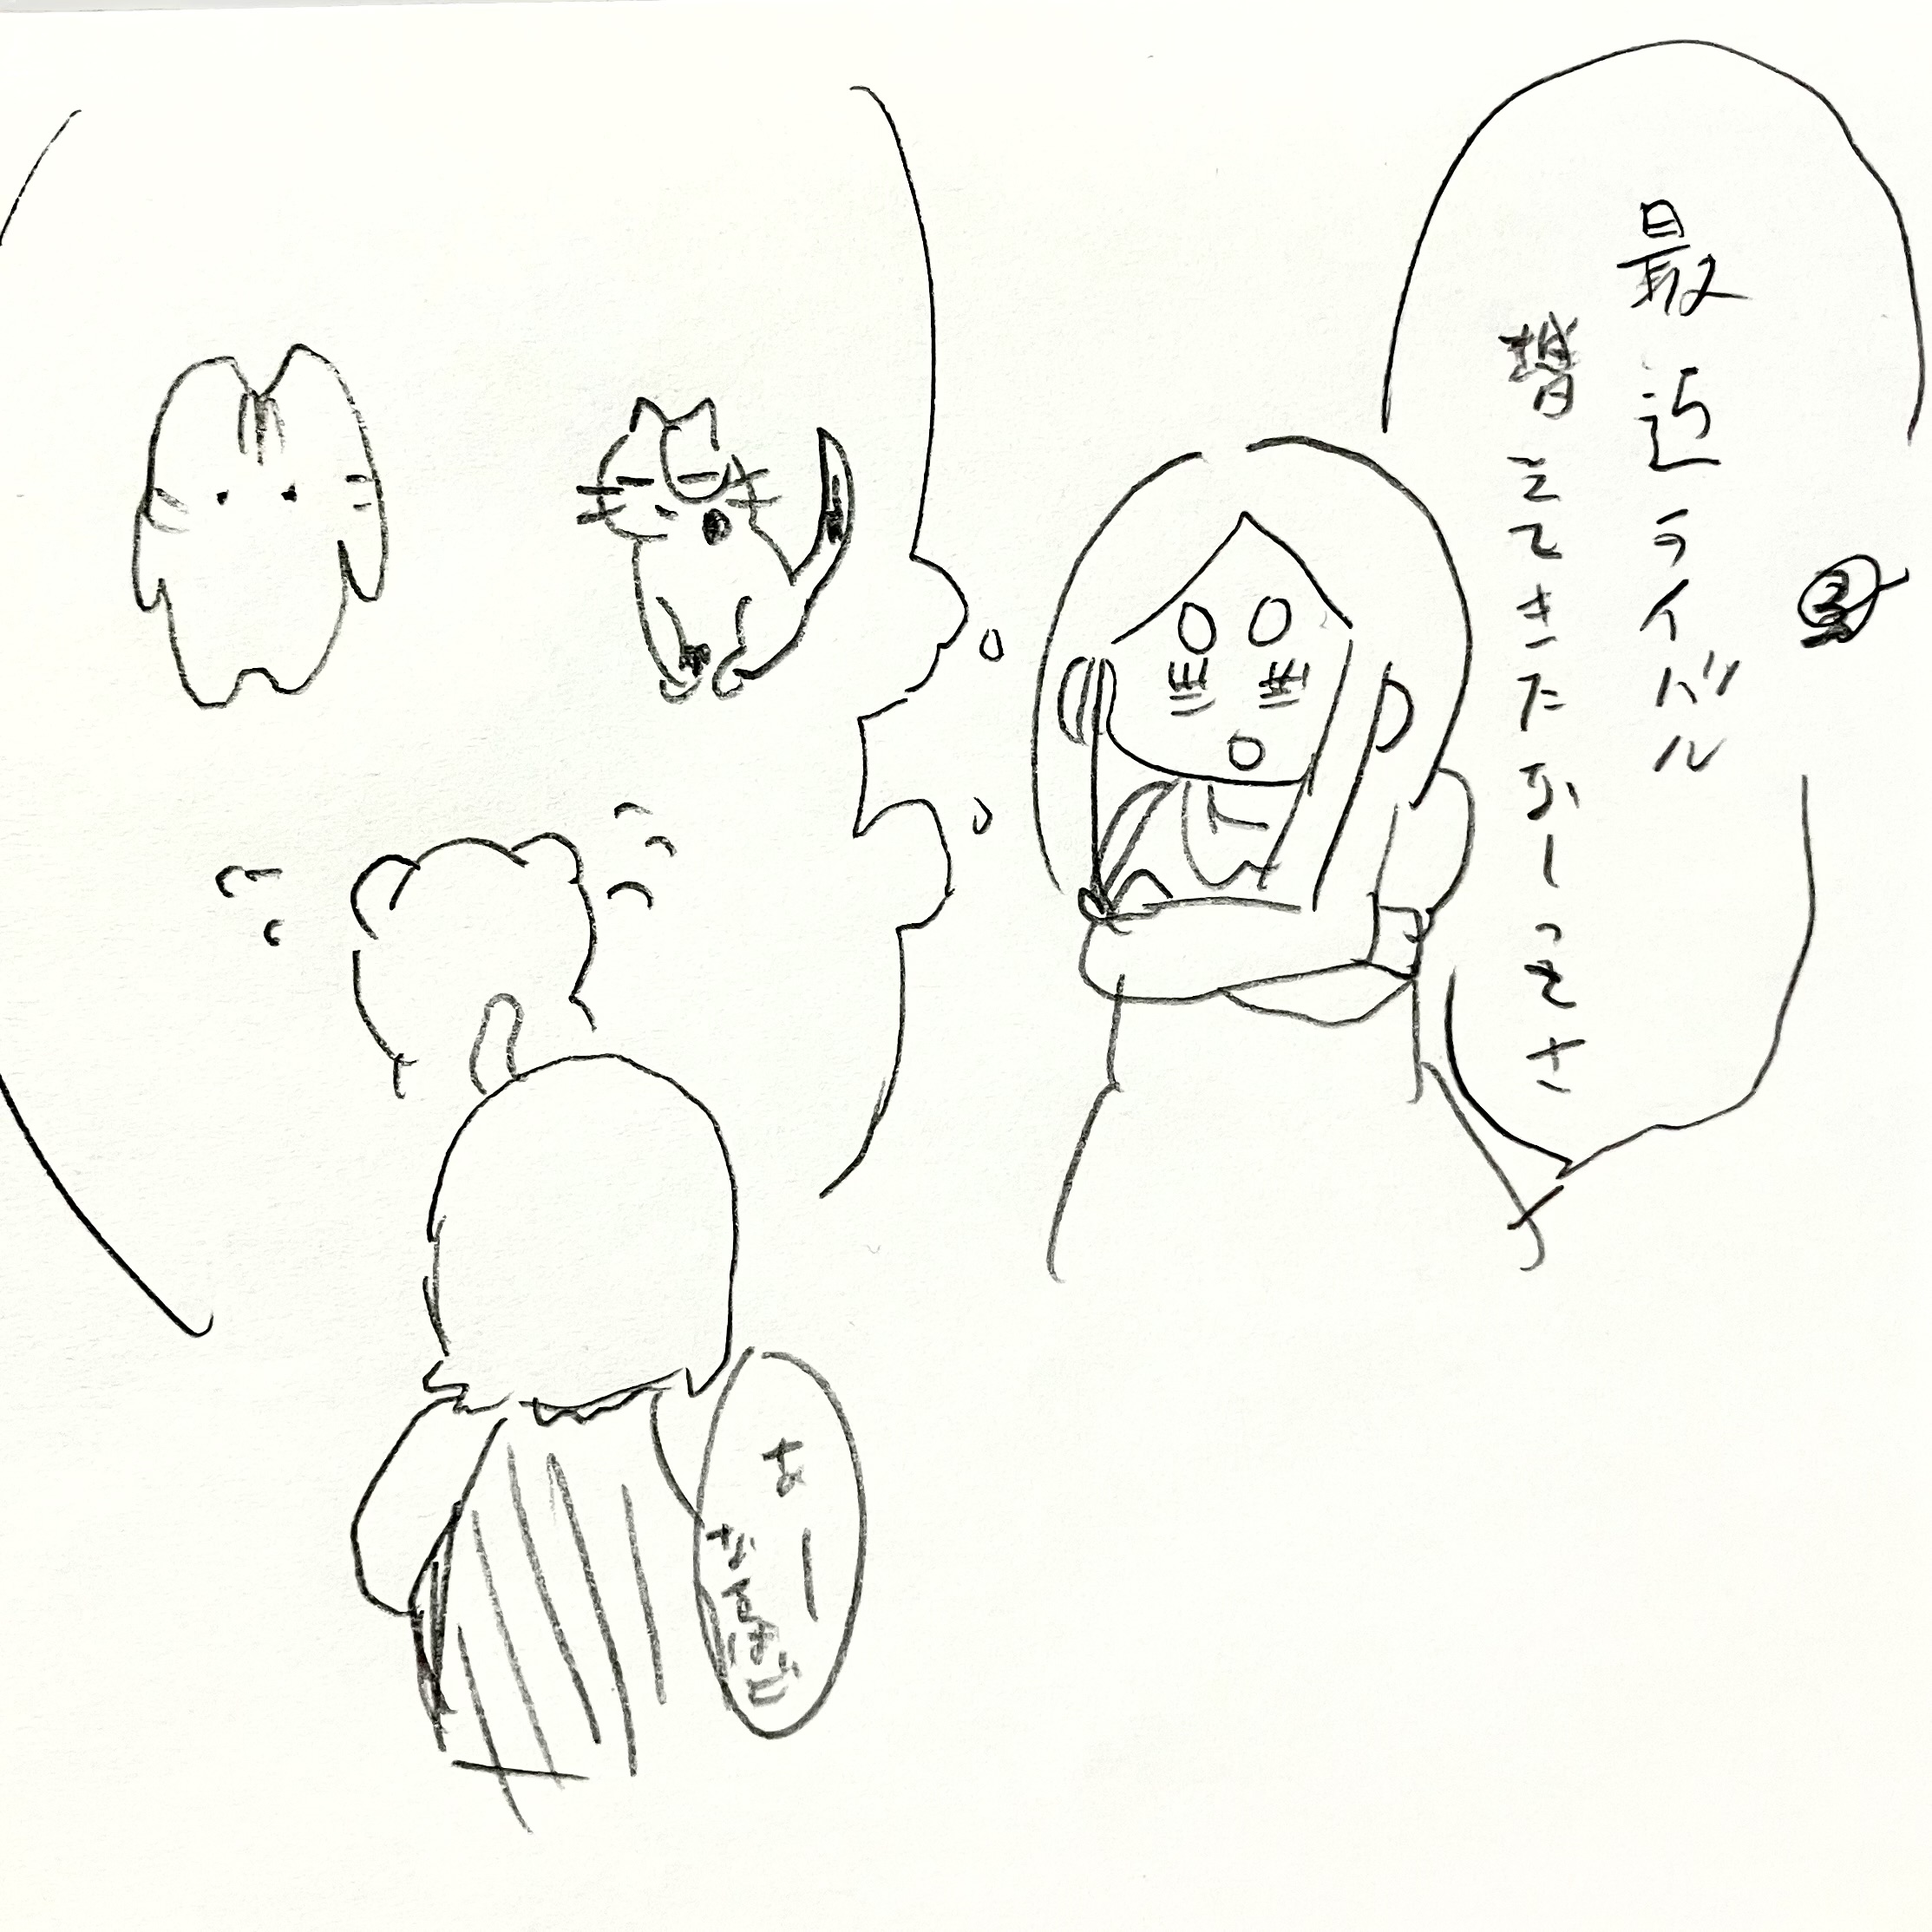 最近ライバル
増えてきたなーってさ
あー
なるほど